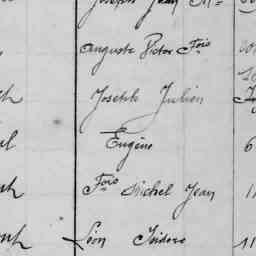 Joseph Jean M
Auguste Victor Fois
Joseph Julien
Eugène 6
Fois Michel Jean 1
Léon Isidore 11